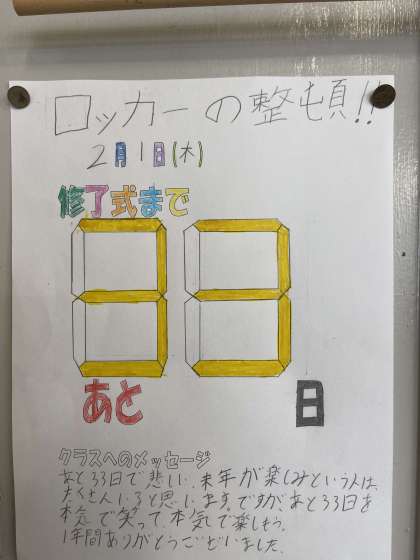 ロッカーの整頓!!
2月1日(木)
修了式まで
33
あと 日
クラスへのメッセージ
あと33日で悲しい、来年が楽しみという人は、
たくさんいると思います。ですが、あと33日を
本気で笑って、本気で楽しもう。
1年間ありがとうございました。